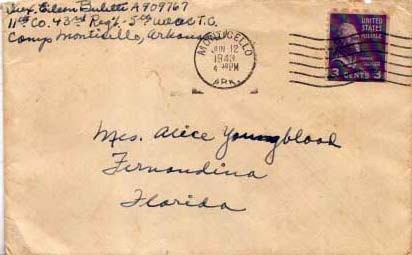 Aux. Eileen A909767
11th Co. 43rd Regt. 5th WAAC T.C.
Camp Monticello, Arkansas
MONTICELLO
JUN 12
1943
4 PM
ARK.
UNITED
STATES
POSTAGE
3 CENTS 3
Mrs. Alice Youngblood
Fernandina
Florida